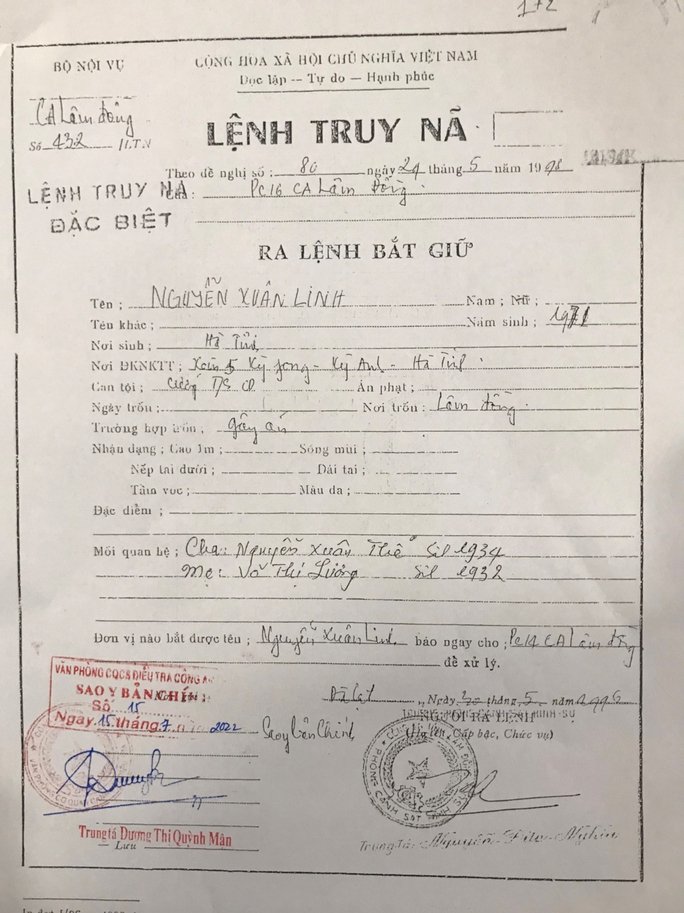 172
BỘ NỘI VỤ
CỘNG HÒA XÃ HỘI CHỦ NGHĨA VIỆT NAM
Độc lập -- Tự do — Hạnh phúc
CA Lâm Đồng
Số 432 /LTN
LỆNH TRUY NÃ
Theo đề nghị số : 80 ngày 29 tháng 5 năm 1998
LỆNH TRUY NA
ĐẶC BIỆT
Của : PC16 CA Lâm Đồng.
RA LỆNH BẮT GIỮ
Tên ; NGUYỄN XUÂN LINH Nam ; Nữ ;
Tên khác ; Năm sinh ; 1971
Nơi sinh ; Hà Tĩnh
Nơi ĐKNKTT ; Xóm 5 Kỳ Jong - Kỳ Anh - Hà Tĩnh.
Can tội ; Cướp T/S CD Án phạt ;
Ngày trốn ; Nơi trốn ; Lâm Đồng.
Trường hợp trốn ; gây án
Nhận dạng ; Cao 1m ; Sống mũi ;
Nếp tai dưới ; Dái tai ;
Tầm vóc ; Màu da ;
Đặc điểm ;
Mối quan hệ ; Cha: Nguyễn Xuân Thể Sil 1934
Mẹ: Võ Thị Lương Sil 1932
Đơn vị nào bắt được tên ; Nguyễn Xuân Linh báo ngay cho ; PC14 CA Lâm Đồng
để xử lý.
VĂN PHÒNG CQCS ĐIỀU TRA CÔNG AN
SAO Y BẢN CHÍNH
Số 15
Ngày 15 tháng 7 năm 2022
Đà Lạt, Ngày tháng 5 năm
Sao y bản Chính
NGƯỜI RA LỆNH
(Họ tên, Cấp bậc, Chức vụ)
Trung tá Dương Thị Quỳnh Mân
Lưu
Trung tá: Nguyễn